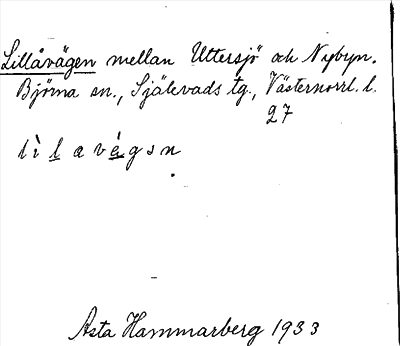 Lillåvägen mellan Uttersjö och Nybyn.
Björna sn., Själevads tg., Västernorrl. l.
27
lìlavégən
Asta Hammarberg 1933